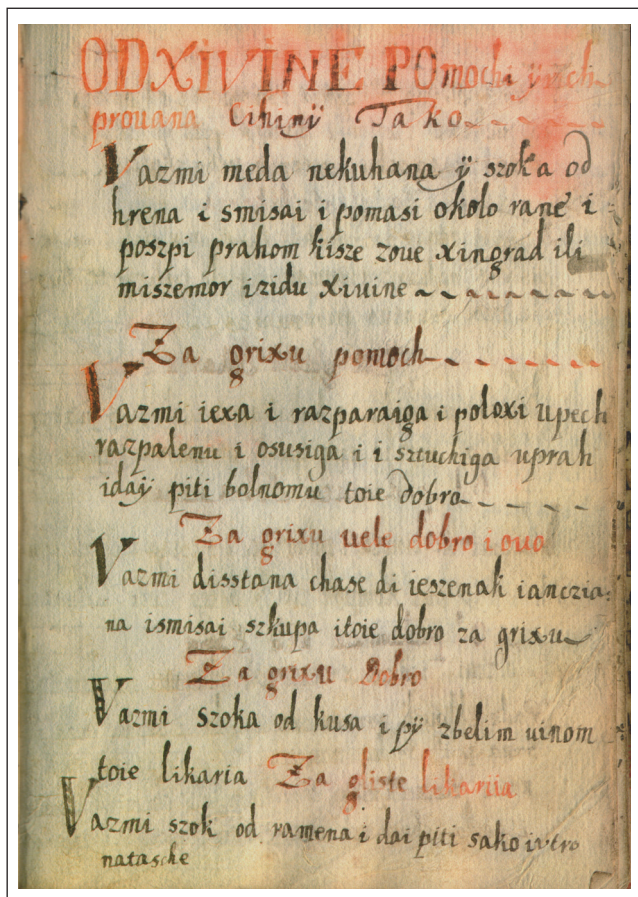 ODXIVINE POmochi ynch
prouana Cihinÿ Tako
Vazmi meda nekuhana ÿ szoka od
hrena i smisai i pomasi okolo rane i
poszpi prahom kisze zoue xingrad ili
miszemor izidu xiuine
Za grixu pomoch
Vazmi iexa i razparaiga i poloxi upech
razpalenu i osusiga i i sztuchiga uprah
idaÿ piti bolnomu toie dobro
Za grixu uele dobro i ouo
Vazmi disstana chase di ieszenak ianczia:
na ismisai szkupa itoie dobro za grixu
Za grixu Dobro
Vazmi szoka od kusa i pÿ zbelim uinom
toie likaria Za gliste likariia
Vazmi szok od ramena i dai piti sako iutro
natasche